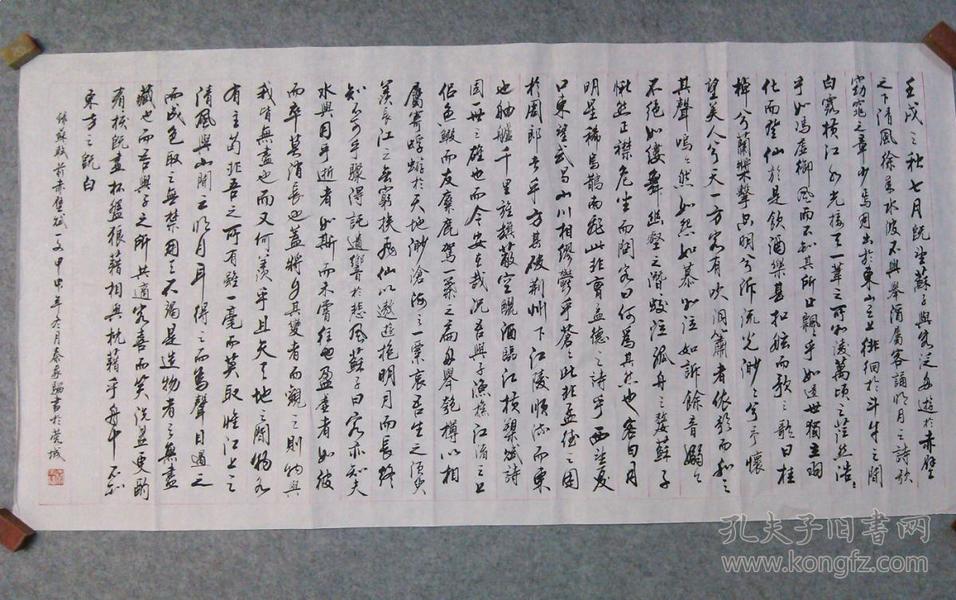 壬戌之秋七月既望蘇子與客泛舟遊於赤壁
之下清風徐來水波不興舉酒屬客誦明月之詩歌
窈窕之章少焉月出於東山之上徘徊於斗牛之間
白露橫江水光接天一葦之所如凌萬頃之茫然浩浩
乎如馮虛御風而不知其所止飄飄乎如遺世獨立羽
化而登仙於是飲酒樂甚扣舷而歌之歌曰桂
棹兮蘭槳擊空明兮泝流光渺渺兮予懷
望美人兮天一方客有吹洞簫者依歌而和之
其聲嗚嗚然如怨如慕如泣如訴餘音嫋嫋
不絕如縷舞幽壑之潛蛟泣孤舟之嫠婦蘇子
愀然正襟危坐而問客曰何為其然也客曰月
明星稀烏鵲南飛此非曹孟德之詩乎西望夏
口東望武昌山川相繆鬱乎蒼蒼此非孟德之困
於周郎者乎方其破荊州下江陵順流而東
也舳艫千里旌旗蔽空釃酒臨江橫槊賦詩
固一世之雄也而今安在哉況吾與子漁樵江渚之上
侶魚蝦而友麋鹿駕一葉之扁舟舉匏樽以相
屬寄蜉蝣於天地渺滄海之一粟哀吾生之須臾
羨長江之無窮挾飛仙以遨遊抱明月而長終
知不可乎驟得託遺響於悲風蘇子曰客亦知夫
水與月乎逝者如斯而未嘗往也盈虛者如彼
而卒莫消長也蓋將自其變者而觀之則物與
我皆無盡也而又何羨乎且夫天地之間物各
有主苟非吾之所有雖一毫而莫取惟江上之
清風與山間之明月耳得之而為聲目遇之
而成色取之無禁用之不竭是造物者之無盡
藏也而吾與子之所共適客喜而笑洗盞更酌
肴核既盡杯盤狼藉相與枕藉乎舟中不知
東方之既白
錄蘇軾前赤壁賦
甲申年
孔夫子旧书网
www.kongfz.com